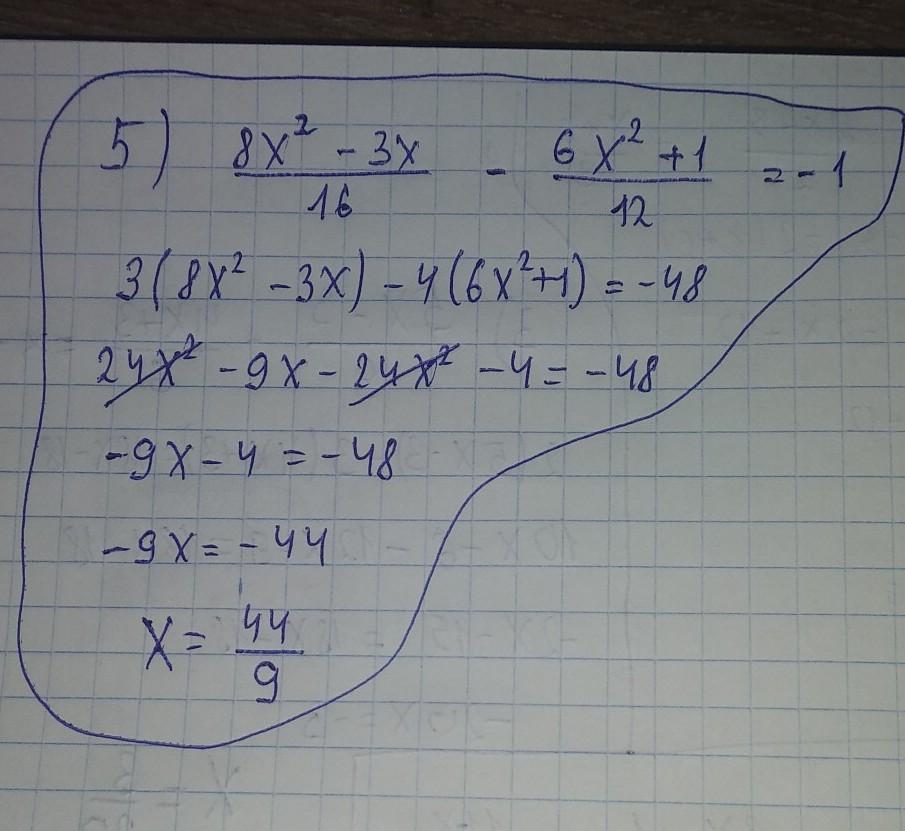 5) (8x² - 3x)/16 - (6x² + 1)/12 = -1
3(8x² - 3x) - 4(6x² + 1) = -48
24x² - 9x - 24x² - 4 = -48
-9x - 4 = -48
-9x = -44
x = 44/9